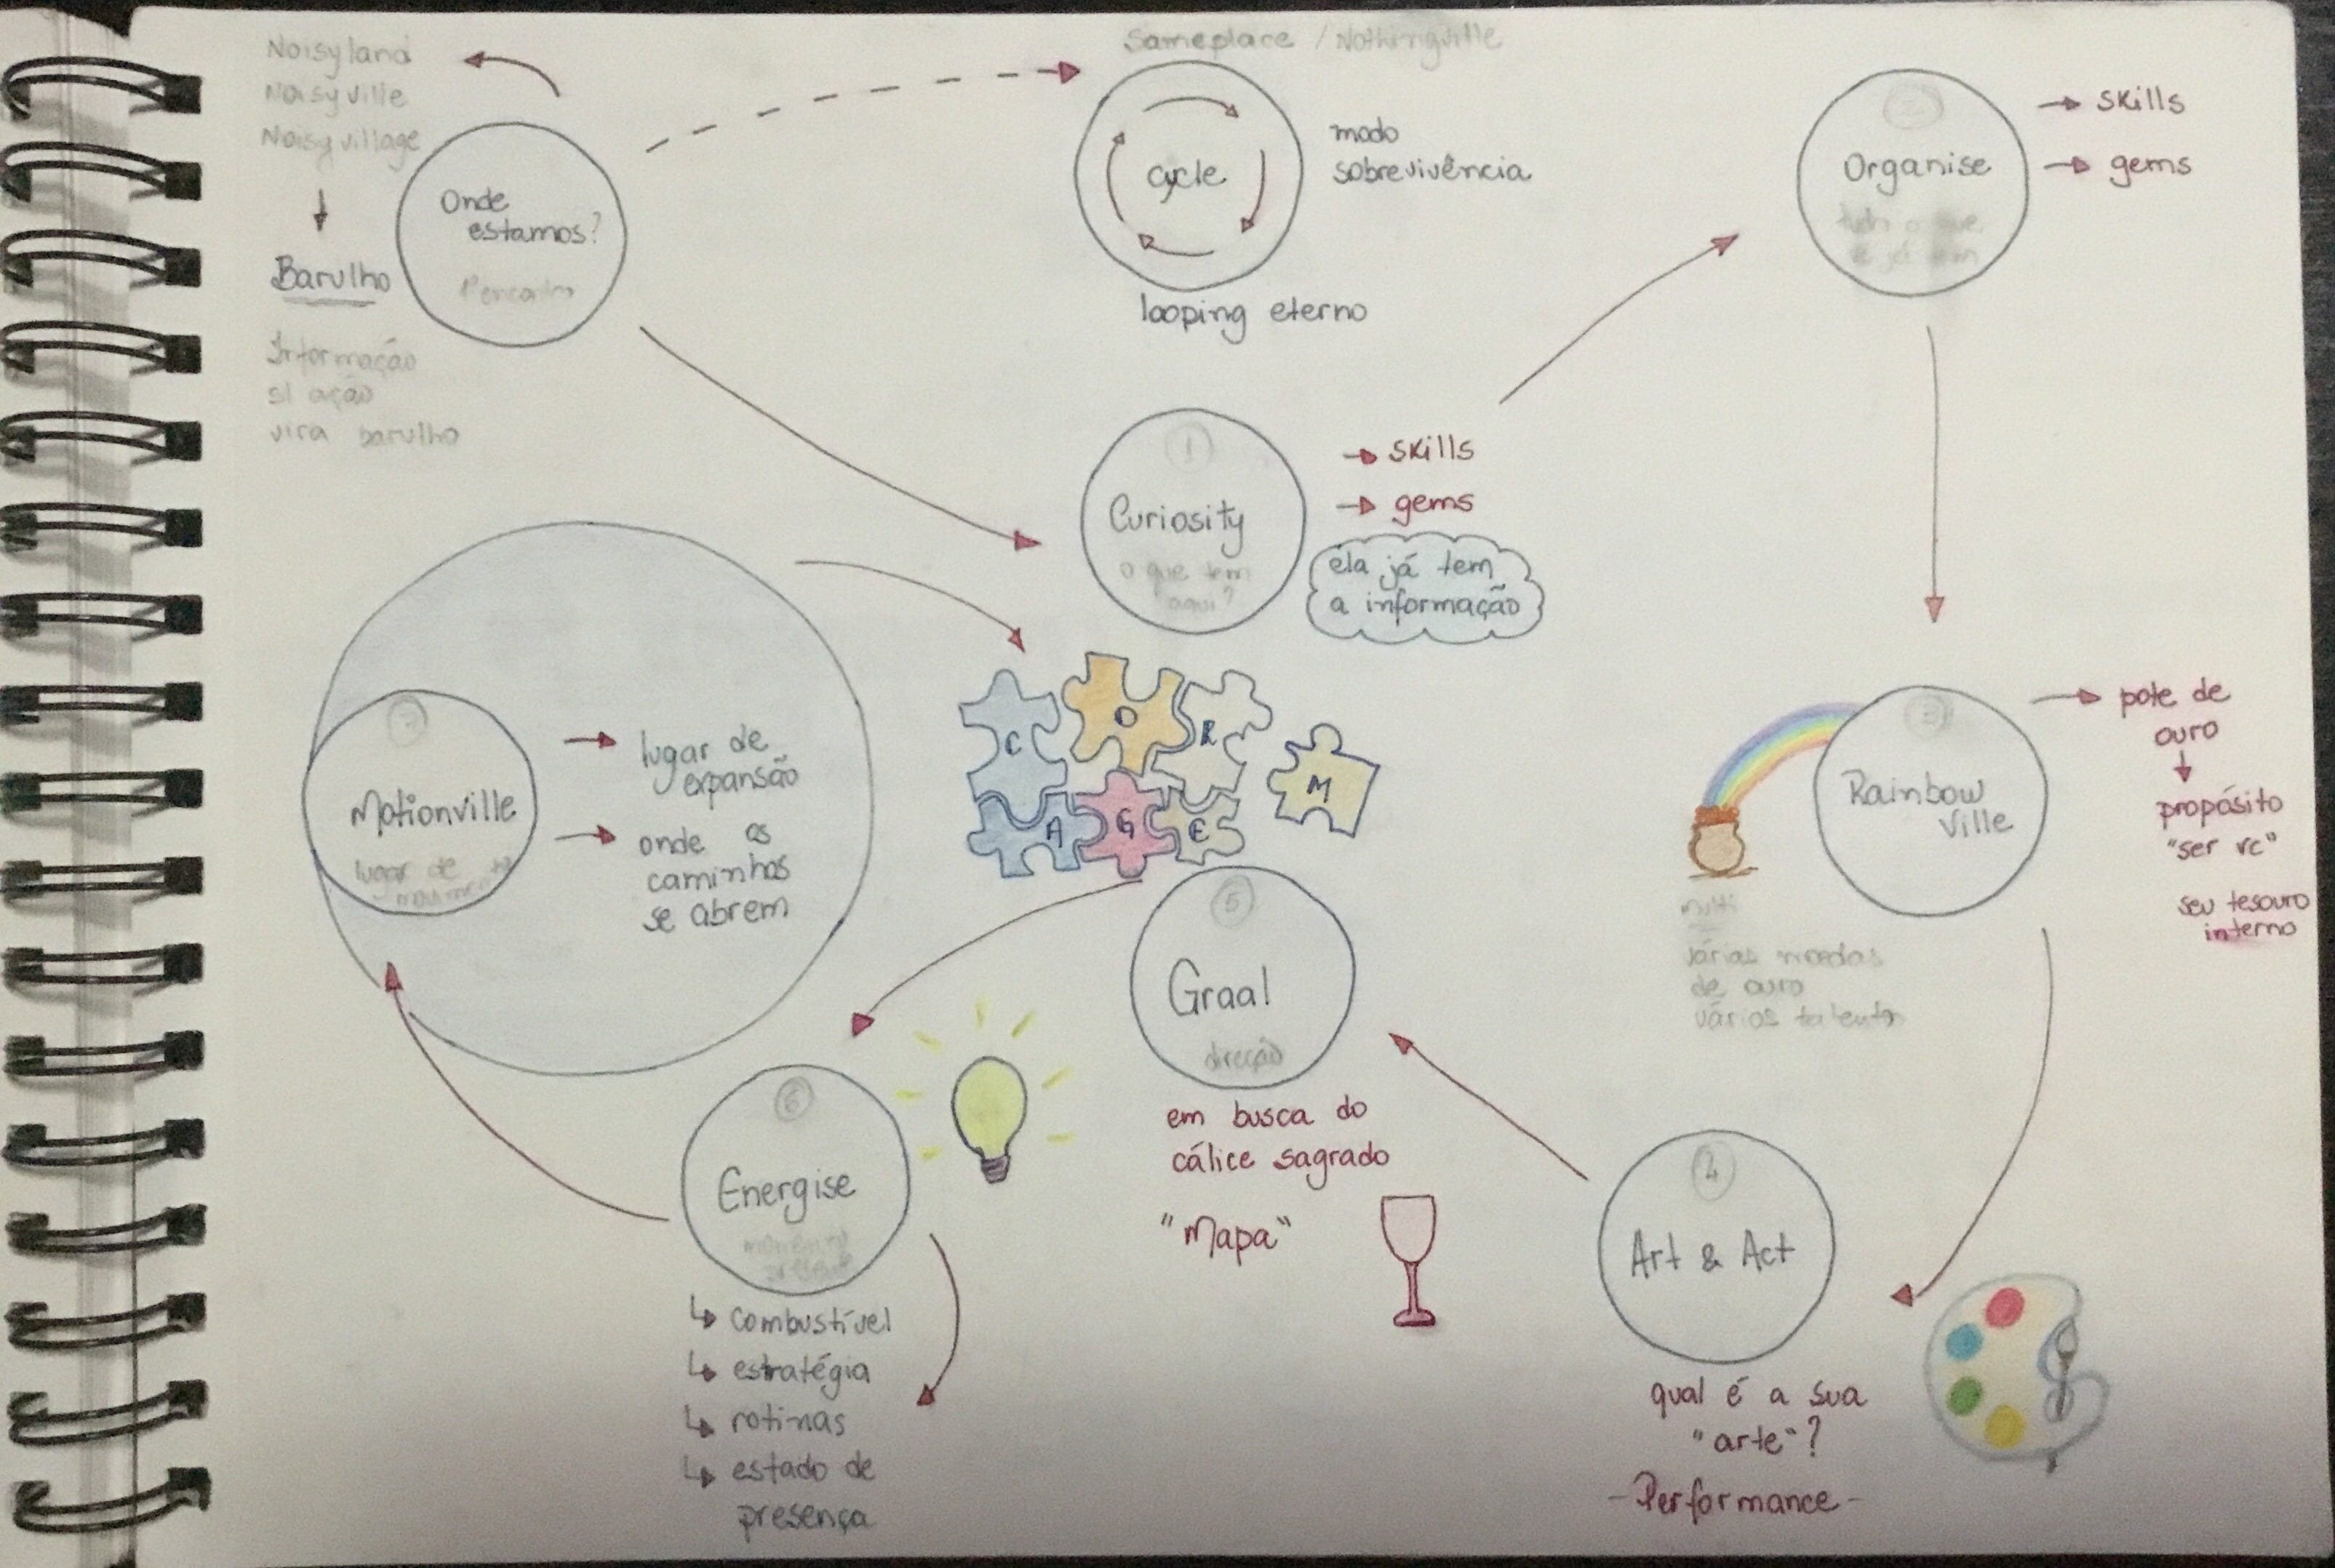 Noisyland
Noisyville
Noisyvillage
Barulho
Informação
s/ ação
vira barulho
Onde
estamos?
Sameplace / Nothingville
cycle
modo
sobrevivência
looping eterno
2
Organise
tudo o que
já tem
→ skills
→ gems
1
Curiosity
o que tem
aqui?
→ skills
→ gems
ela já tem
a informação
C O R
A G E
M
7
Motionville
lugar de
→ lugar de
expansão
→ onde os
caminhos
se abrem
3
Rainbow
Ville
→ pote de
ouro
propósito
"ser vc"
seu tesouro
interno
multi
várias moedas
de ouro
vários talentos
5
Graal
direção
em busca do
cálice sagrado
"Mapa"
4
Art & Act
qual é a sua
"arte"?
- Performance -
6
Energise
momento
↳ combustível
↳ estratégia
↳ rotinas
↳ estado de
presença